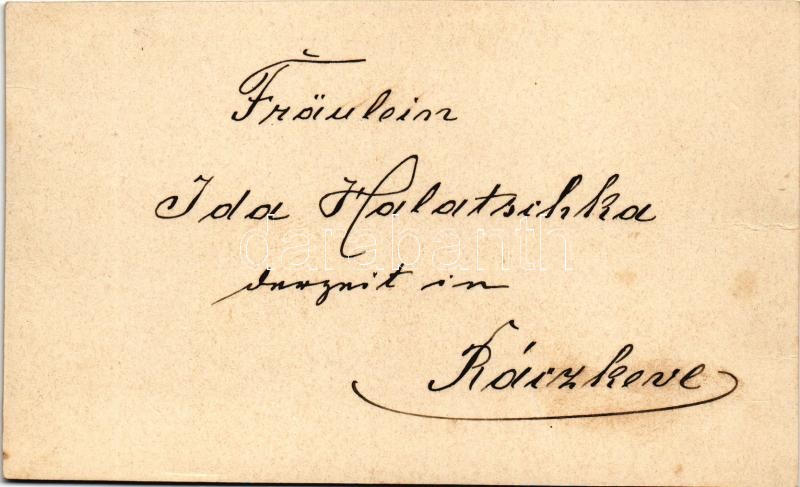 Fräulein
Ida Halatschka
darabanth
derzeit in
Ráczkeve